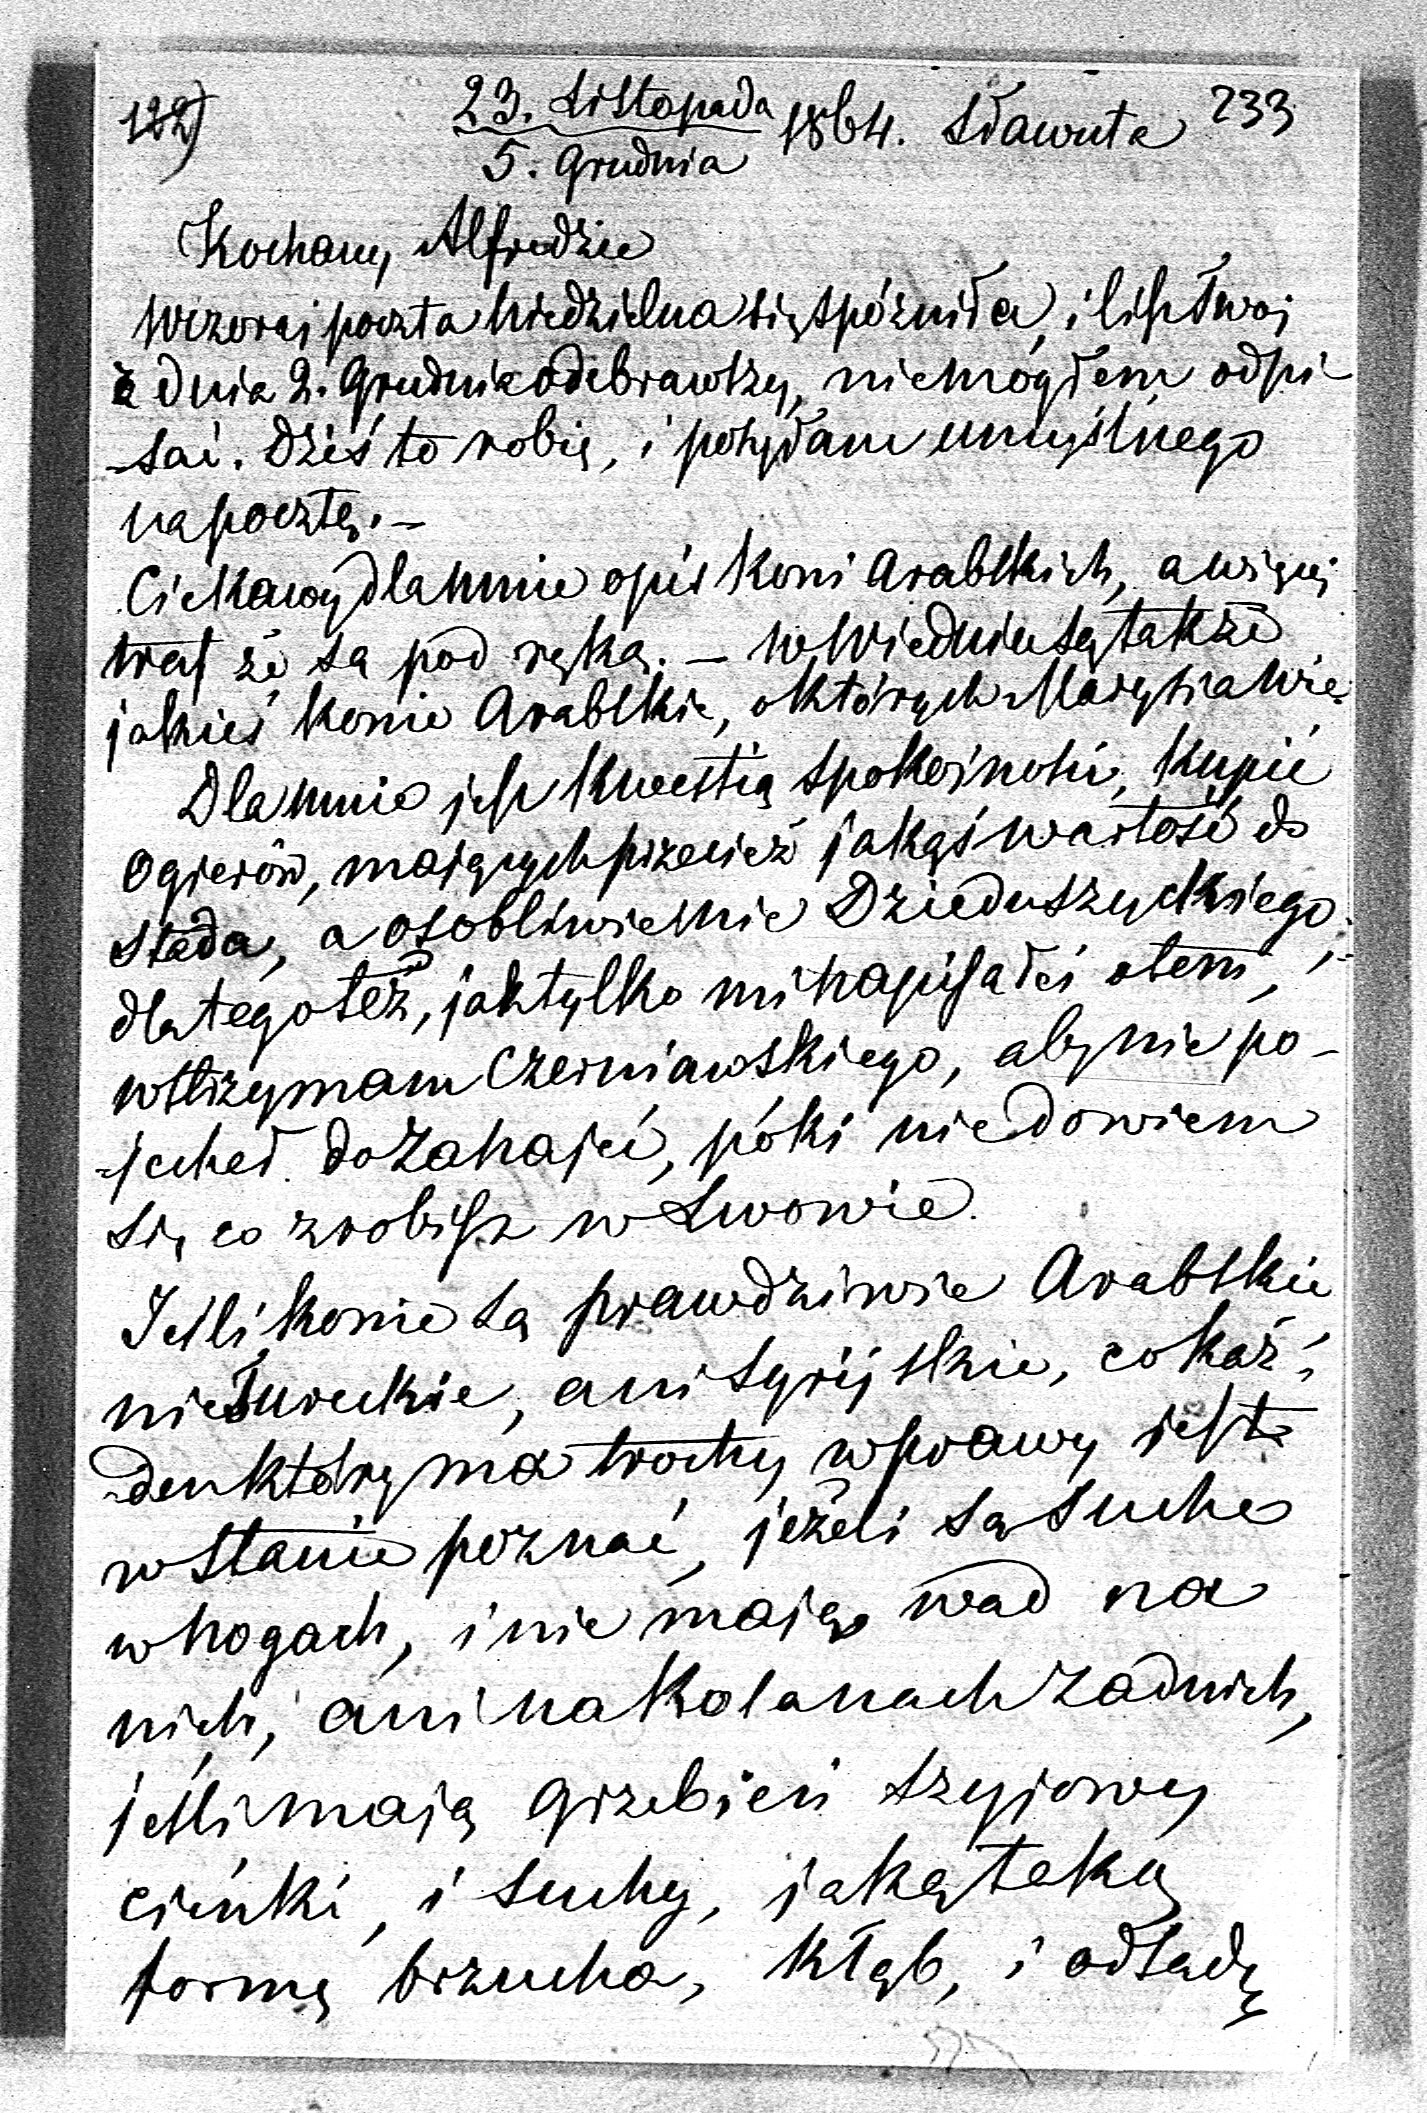 122) 23. Listopada 1864. Sławuta 233
5. Grudnia
Kochany Alfredzie
Wczoraj poczta Niedzielna się spóźniła, i list twoj
z dnia 2. Grudnia odebrawszy, niemogłem odpi-
-sać. Dziś to robię, i posyłam umyślnego
na pocztę. –
Ciekawy dla mnie opis koni Arabskich, a więcej
traf że są pod ręką. – w Wiedniu są także
jakieś konie Arabskie, o których Marysia wie.
Dla mnie jest kwestią spokojności, kupić
Ogierów, mających przecież jakąś wartość do
stada, a osobliwie nie Dzieduszyckiego;
dla tego też, jak tylko mi napisałeś o tem,
wstrzymam Czerniawskiego, aby nie po-
-jechał do Zahajec, póki nie dowiem
się co zrobisz w Lwowie.
Jeśli konie są prawdziwie Arabskie
nie Tureckie, ani Syryjskie, co każ-
-den który ma trochę wprawy jest
w stanie poznać, jeżeli są suche
w nogach, i nie mają wad na
nich, ani na kolanach zadnich,
jeśli mają grzebień szyjowy
cieńki, i suchy, jaką taką
formę brzucha, kłąb, i odsadę